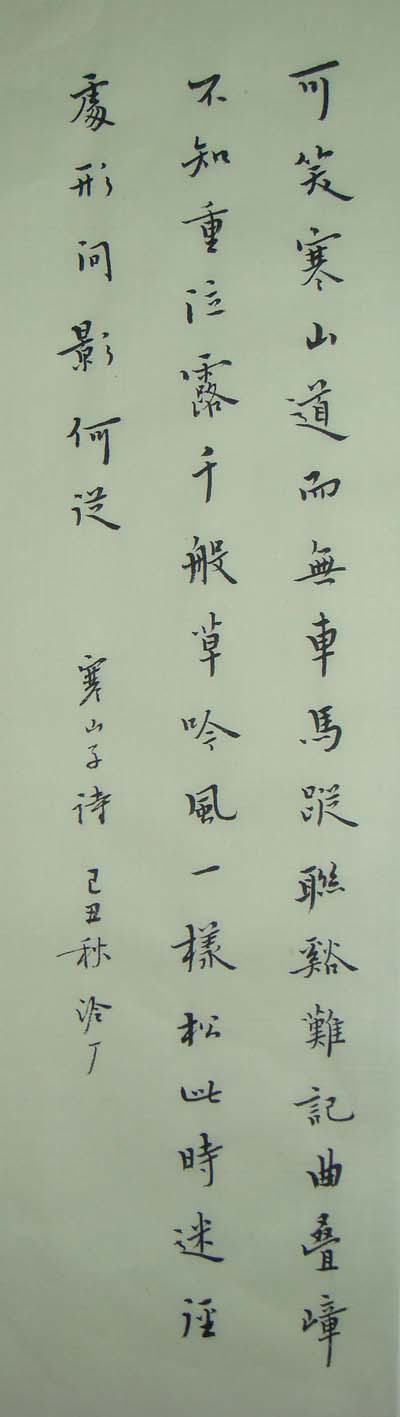 可笑寒山道而無車馬蹤聯谿難記曲疊嶂
不知重泣露千般草吟風一樣松此時迷徑
處形问影何從
寒山子詩 己丑秋 泠丁